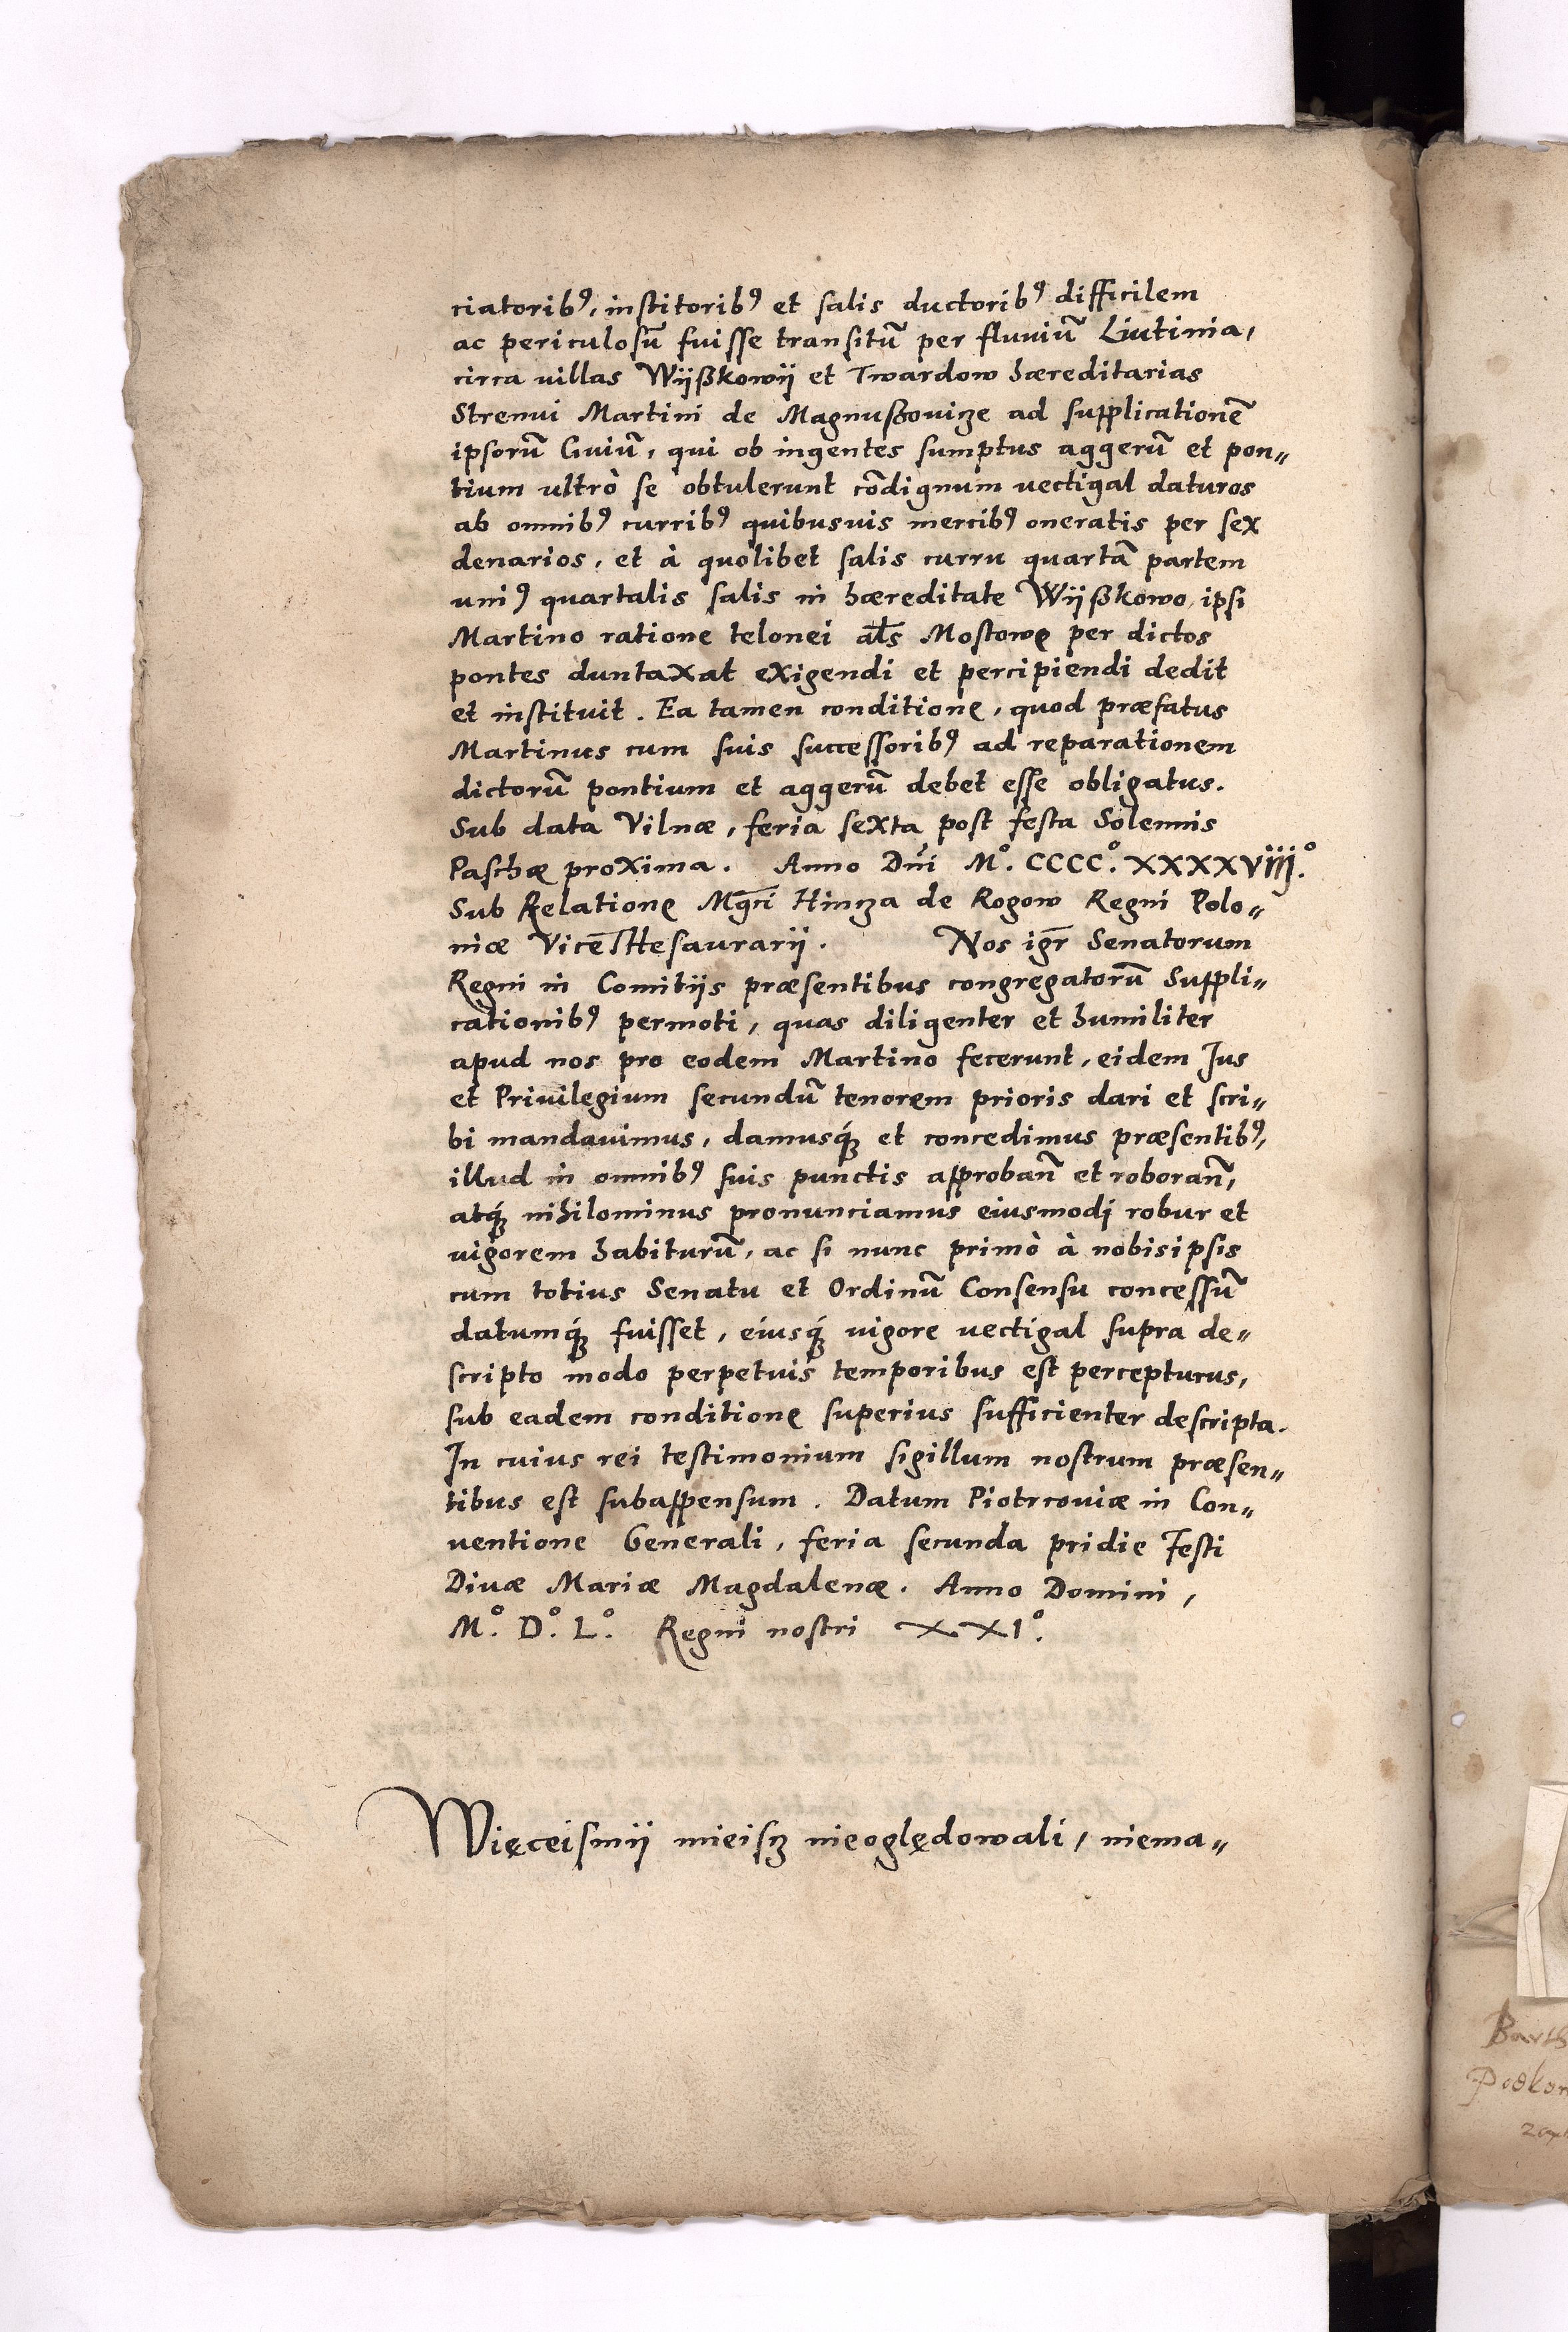 ciatorib⁹, institorib⁹ et salis ductorib⁹ difficilem
ac periculosū fuisse transitū per fluviū Liutinia,
circa villas Wÿßkowÿ et Twardow hæreditarias
Strenui Martini de Magnußowicze ad supplicationē
ipsorū Civiū, qui ob ingentes sumptus aggerū et pon„
tium ultrò se obtulerunt cōdignum vectigal daturos
ab omnib⁹ currib⁹ quibusvis mercib⁹ oneratis per sex
denarios, et à quolibet salis curru quartā partem
uni⁹ quartalis salis in hæreditate Wÿßkowo, ipsi
Martino ratione telonei al̄s Mostowę per dictos
pontes duntaxat exigendi et percipiendi dedit
et instituit. Ea tamen conditionę, quod præfatus
Martinus cum suis successorib⁹ ad reparationem
dictorū pontium et aggerū debet esse obligatus.
Sub data Vilnæ, feria sexta post festa Solennis
Paschæ proxima. Anno Dn̄i M°. CCCC°. XXXXViij°.
Sub Relationę Mḡci Hincza de Rogow Regni Polo„
niæ Vicēthesaurarij. Nos igr̄ Senatorum
Regni in Comitijs præsentibus congregatorū Suppli„
cationib⁹ permoti, quas diligenter et humiliter
apud nos pro eodem Martino fecerunt, eidem Jus
et Privilegium secundū tenorem prioris dari et scri„
bi mandavimus, damusq́ꝫ et concedimus præsentib⁹,
illud in omnib⁹ suis punctis approban̄ et roboran̄,
atq́ꝫ nihilominus pronunciamus eiusmodi robur et
vigorem habiturū, ac si nunc primò à nobis ipsis
cum totius Senatu et Ordinū Consensu concessū
datumq́ꝫ fuisset, eiusq́ꝫ vigore vectigal supra de„
scripto modo perpetuis temporibus est percepturus,
sub eadem conditionę superius sufficienter descripta.
In cuius rei testimonium sigillum nostrum præsen„
tibus est subappensum. Datum Piotrcoviæ in Con„
ventione Generali, feria secunda pridie Festi
Divæ Mariæ Magdalenæ. Anno Domini,
M°. D°. L°. Regni nostri XXI°.
Więceismÿ mieiscz nieoględowali, niema„
Barth
Podkom